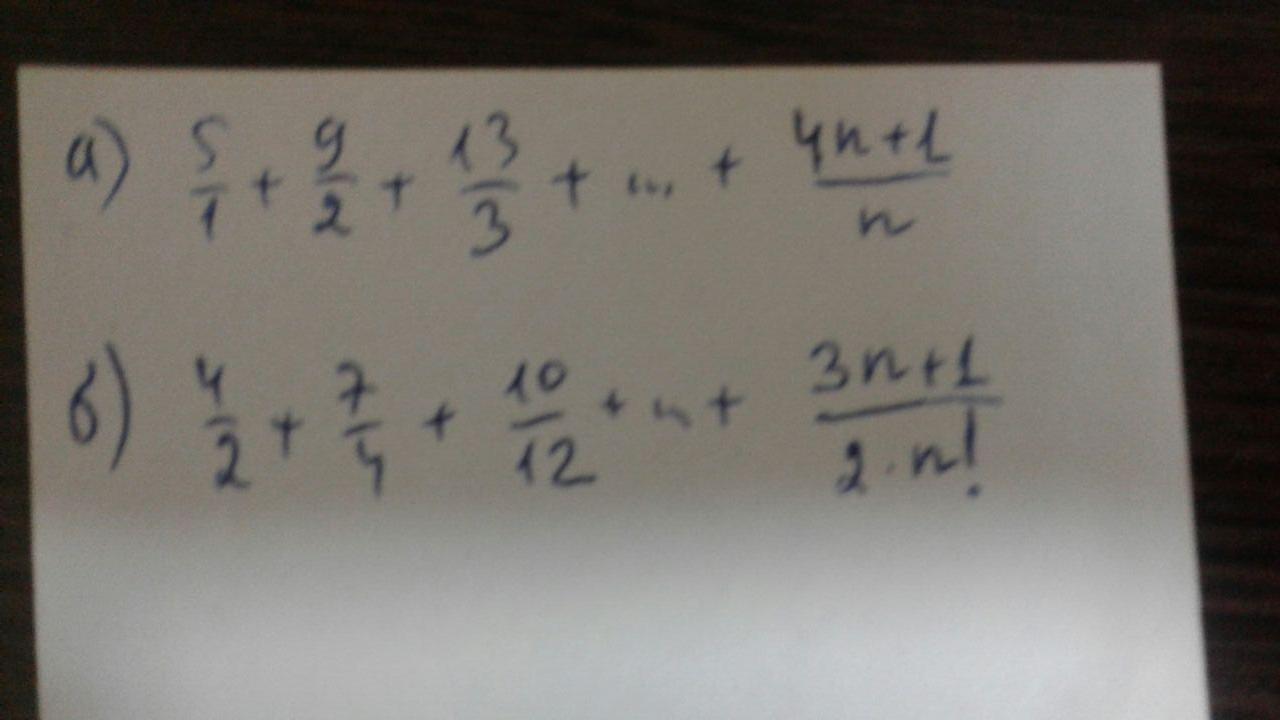 а) 5/1 + 9/2 + 13/3 + ... + 4n+1/n
б) 4/2 + 7/4 + 10/12 + ... + 3n+1/2·n!